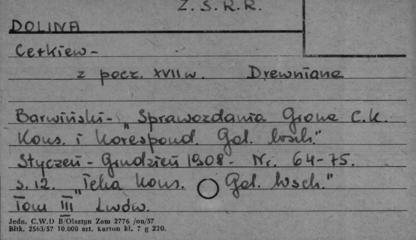 Z. S. R. R.
DOLINA
Cerkiew -
z pocz. XVII w. Drewniana
Barwiński - "Sprawozdania Grona C.K.
Kons. i Korespond. Gal. Wsch."
Styczeń - Grudzień 1908 - Nr. 64-75.
s. 12. "Teka Kons. Gal. Wsch."
Tom III Lwów.
Jedn. C.W.D B/Olsztyn Zam 2776 /on/57
Bltk. 2563/57 10.000 szt. karton kl. 7 g 220.